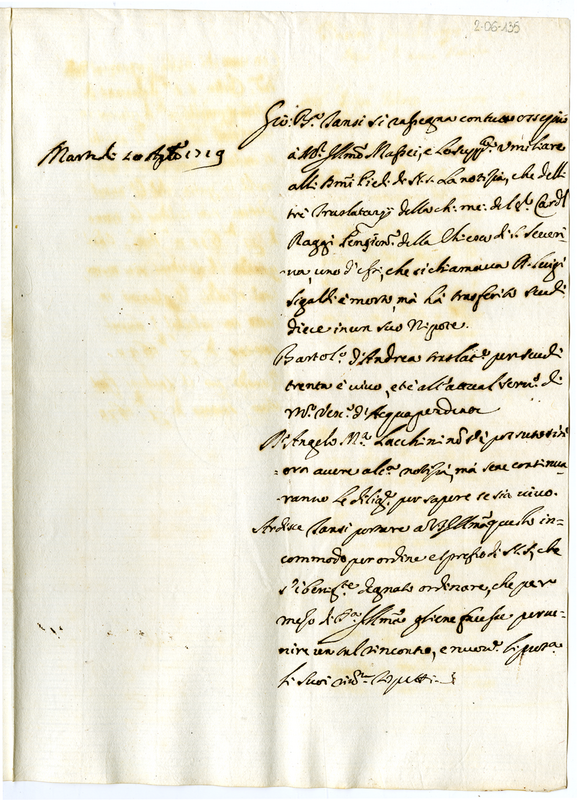 2-06-135
Martedì 1719
Gio: Bta Sansi si rassegna con tutto ossequio
à Mr Illmo Massei, e lo supp.ca umiliare
alli Bmi Piedi di S. S. la notizia, che delli
tré Traslatarj della ch: me: del Sr Cardl
Raggi Pension.o della Chiesa di S. Severi-
na, uno d'essi, che si chiamava P. Luigi
è morto, mà hà trasferito scudi
diece in un suo Nipote.
Bartol.o d'Andrea traslat.o per scudi
trenta è vivo, et è all'attual serviz.o di
Mr Vesc.o d'Acquapendente
D. Angelo Ma Lacchini non si è potuto sin'
ora avere alc.a notizia, mà se ne continue-
ranno le dilig.e per sapere se sia vivo.
Ardisce Sansi portare a V. S. Illma questo in-
commodo per ordine espresso di S. S., che
si è degnato ordinare, che per
mezo di V. S. Illma gliene facesse perve-
nire un tal rincontro, e nuov.e
li suoi